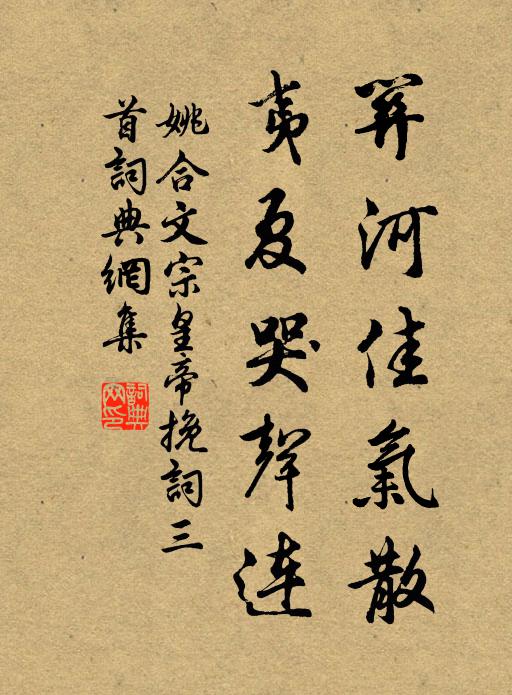 關河佳氣散
夷夏哭聲連
姚合文宗皇帝挽詞三
首詞典網集
詞典網印